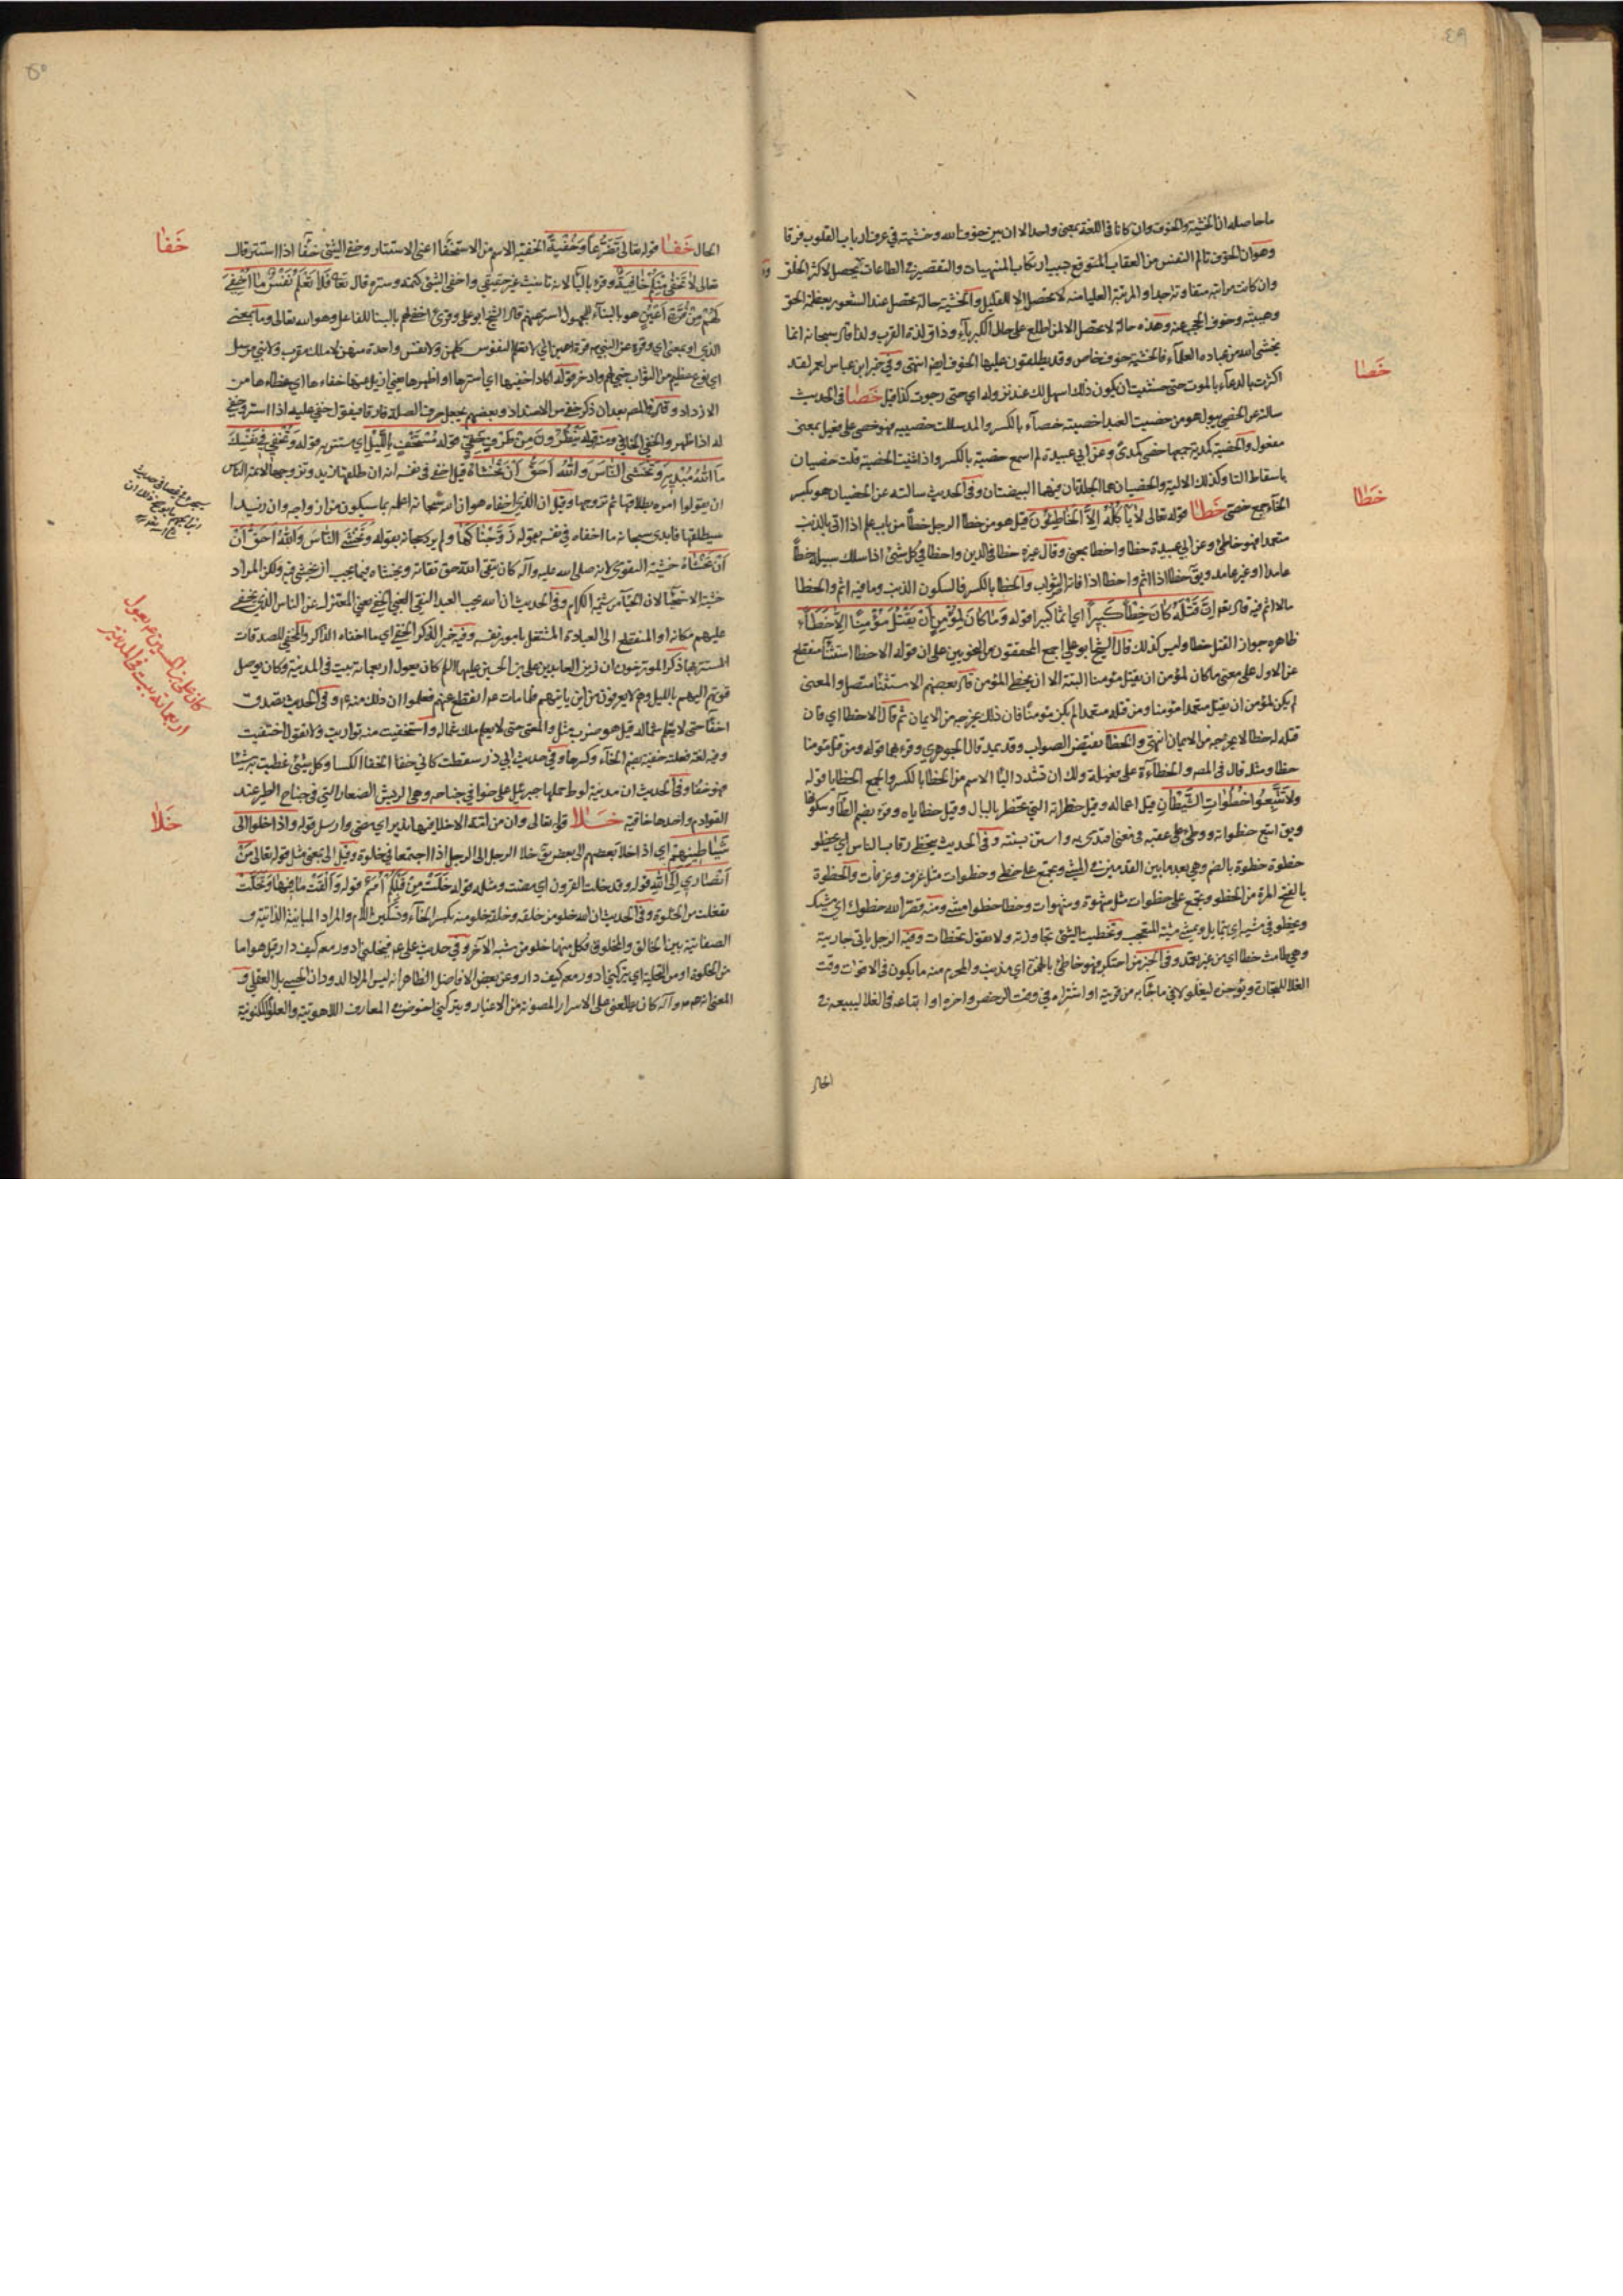 ٤٩
ما حاصله ان الخشية والخوف وان كانا فى اللغة بمعنى واحد الا ان بين خوف الله وخشيته فى عرف ارباب القلوب فرقا
وهو ان الخوف تالم النفس من العقاب المتوقع بسبب ارتكاب المنهيات والتقصير فى الطاعات يحصل لاكثر الخلق
وان كانت مراتبه متفاوتة جدا والمرتبة العليا منه لا تحصل الا للقليل والخشية حالة تحصل عند الشعور بعظمة الحق
وهيبته وخوف الحجب عنه وهذه حالة لا تحصل الا لمن اطلع على جلال الكبرياء وذاق لذة القرب ولذا قال سبحانه انما
يخشى الله من عباده العلماء فالخشية خوف خاص وقد يطلقون عليها الخوف ايضا انتهى وفى خبر ابن عباس لعمر لقد
اكثرت بالدعاء بالموت حتى خشيت ان يكون ذلك اسهل لك عند نزوله اى حتى رجوت كذا قيل خصا فى الحديث
خصا
سالته عن الخصى يبول هو من خصيت العبد اخصيته خصآء بالكسر والمد سللت خصييه فهو خصى على فعيل بمعنى
مفعول والخصية كمدية جمعها خصى كمدى وعن ابى عبيدة لم اسمع خصية بالكسر واذا ثنيت الخصية قلت خصيان
باسقاط التا وكذلك الالية والخصيان هما الجلدتان فيهما البيضتان وفى الحديث سالته عن الخصيان هو بكسر
الخآء جمع خصى خطا قوله تعالى لا ياكله الا الخاطئون قيل هو من خطا الرجل خطأ من باب علم اذا اتى بالذنب
خطا
متعمدا فهو خاطئ وعن ابى عبيدة خطا واخطا بمعنى وقال غيره خطا فى الدين واخطا فى كل شئ اذا سلك سبيل خطأ
عامدا او غير عامد ويق خطا اذا اثم واخطا اذا فاته الصواب والخطا بالكسر فالسكون الذنب وما فيه اثم والخطا
مالا اثم فيه قال تع ان قتلهم كان خطأ كبيرا اى اثما كبيرا قوله وما كان لمؤمن ان يقتل مؤمنا الا خطأ
ظاهره جواز القتل خطا وليس كذلك قال الشيخ ابو على اجمع المحققون من النحويين على ان قوله الا خطا استثنآ منقطع
عن الاول على معنى ما كان لمؤمن ان يقتل مؤمنا البتة الا ان يخطئ المؤمن قال بعضهم الاستثنا متصل والمعنى
لم يكن لمؤمن ان يقتل متعمدا مؤمنا ومن قتله متعمدا لم يكن مؤمنا فان ذلك يخرجه من الايمان ثم قال الا خطا اى فان
قتله له خطا لا يخرجه من الايمان انتهى والخطأ نقيض الصواب وقد يمد قال الجوهرى وقرء بهما قوله ومن قتل مؤمنا
خطا ومثله قال فى المص والخطآءة على فعيلة ولك ان تشدد اليا الاسم من الخطا بالكسر والجمع الخطايا قوله
ولا تتبعوا خطوات الشيطان قيل اعماله وقيل خطراته التى تخطر بالبال وقيل خطاياه وقرء بضم الطآ وسكونها
ويق اتبع خطواته ووطئ على عقبه فى معنى اقتدى به واستن بسنته وفى الحديث يتخطى رقاب الناس اى يخطو
خطوة خطوة بالضم وهى بعد ما بين القدمين فى المشى وتجمع على خطى وخطوات مثل غرف وغرفات والخطوة
بالفتح المرة من الخطو وتجمع على خطوات مثل شهوة وشهوات وخطا خطوا مشى ومنه قصر الله خطوك اى مشيك
ويخطو فى مشيه اى يتمايل ويمشى مشية المتعجب وتخطيت الشئ تجاوزته ولا تقول تخطات وفيه الرجل ياتى جاريته
وهى طامث خطا اى من غير تعمد وفى الخبر من احتكر فهو خاطئ بالهمزة اى مذنب والمحرم منه ما يكون فى الاقوات وقت
الغلا للتجارة ويؤخره ليغلو لا فى ما جآء به من قريته او اشتراه فى وقت الرخص واخره او ابتاعه فى الغلا ليبيعه فى
الحال
٥٠
الحال خفا قوله تعالى تضرعا وخفية الخفية الاسم من الاستخفا اعنى الاستتار وخفى الشئ خفآ اذا استتر قال
خفا
تعالى لا تخفى منكم خافية وقرء باليآ لانه تانيث غير حقيقى واخفى الشئ كتمه وستره قال تعا فلا تعلم نفس ما اخفى
لهم من قرة اعين هو بالبنآء للمجهول اسر لهم قال الشيخ ابو على وقرئ اخفى لهم بالبنا للفاعل وهو الله تعالى وما بمعنى
الذى او بمعنى اى وقرء عن النبى ص قرة اعين اى لا تعلم النفوس كلهن ولا نفس واحدة منهن لا ملك مقرب ولا نبى مرسل
اى نوع عظيم من الثواب خبى لهم وادخر قوله اكاد اخفيها اى استرها او اظهرها يعنى ازيل عنها خفاءها اى غطاءها من
الازداد وقال فى المص بعد ان ذكر خفى من الاضداد وبعضهم يجعل حرف الصلة فارقا فيقول خفى عليه اذا استتر وخفى
له اذا ظهر والخفى الخافى ومنه قوله ينظرون من طرف خفى قوله مستخف بالليل اى مستتر به قوله وتخفى فى نفسك
ما الله مبديه وتخشى الناس والله احق ان تخشاه قيل اخفى فى نفسه انه ان طلقها زيد وتزوجها لامه الناس
ان يقولوا امره بطلاقها ثم تزوجها وقيل ان الذى اخفاه هو ان الله سبحانه اعلمه بما سيكون من ازواجه وان زيدا
سيطلقها فابدى سبحانه ما اخفاه فى نفسه بقوله زوجناكها ولم يرد سبحانه بقوله وتخشى الناس والله احق ان
ان تخشاه خشية التقوى لانه صلى الله عليه وآله كان يتقى الله حق تقاته ويخشاه فيما يجب ان يخشى فيه ولكن المراد
خشية الاستحيآ لان الحيآ من شيمة الكرام وفى الحديث ان الله يحب العبد التقى الغنى الخفى يعنى المعتزل عن الناس الذى يخفى
عليهم مكانه او المنقطع الى العبادة المشتغل بامور نفسه وفيه خير الذكر الخفى اى ما اخفاه الذاكر والخفى للصدقات
المستتر بها ذكر المورخون ان زين العابدين على بن الحسين عليهما السلم كان يعول اربعمائة بيت فى المدينة وكان يوصل
كان على بن الحسين ع يعول اربعمائة بيت فى المدينة
قوتهم اليهم بالليل وهم لا يعرفون من اين ياتيهم فلما مات ع انقطع عنهم فعلموا ان ذلك منه ع وفى الحديث تصدق
اخفآ حتى لا يعلم شماله قيل هو ضرب مثل والمعنى حتى لا يعلم ملك شماله واستخفيت منه تواريت ولا تقول اختفيت
وفيه لغة قعلته خفية بضم الخآء وكسرها وفى حديث ابى ذر سقطت كانى خفا الخفا الكسا وكل شئ غطيت به شيئا
فهو خفا وفى الحديث ان مدينة لوط حملها جبرئيل على خوافى جناحه وهى الريش الصغار التى فى جناح الطير عند
القوادم واحدها خافية خلا قوله تعالى وان من امة الا خلا فيها نذير اى مضى وارسل قوله واذا خلوا الى
خلا
شياطينهم اى اذا خلا بعضهم الى بعض يق خلا الرجل الى الرجل اذا اجتمعا فى خلوة وقيل الى بمعنى مثل قوله تعالى من
انصارى الى الله قوله وقد خلت القرون اى مضت ومثله قوله خلت من قبلكم امم قوله والقت ما فيها وتخلت
تفعلت من الخلوة وفى الحديث ان الله خلو من خلقه وخلقه خلو منه بكسر الخآء وتسكين اللام والمراد المباينة الذاتية و
الصفاتية بين الخالق والمخلوق فكل منهما خلو من شبه الآخر وفى حديث على ع فيخلينى ادور معه كيف دار قيل هو اما
من الخلوة او من التخلية اى يتركنى ادور معه كيف دار وعن بعض الافاضل الظاهر انه ليس المراد الدوران الحسى بل العقلى و
المعنى انه ص وآله كان يطلعنى على الاسرار المصونة عن الاغيار ويتركنى اخوض فى المعارف اللاهوتية والعلوم الملكوتية